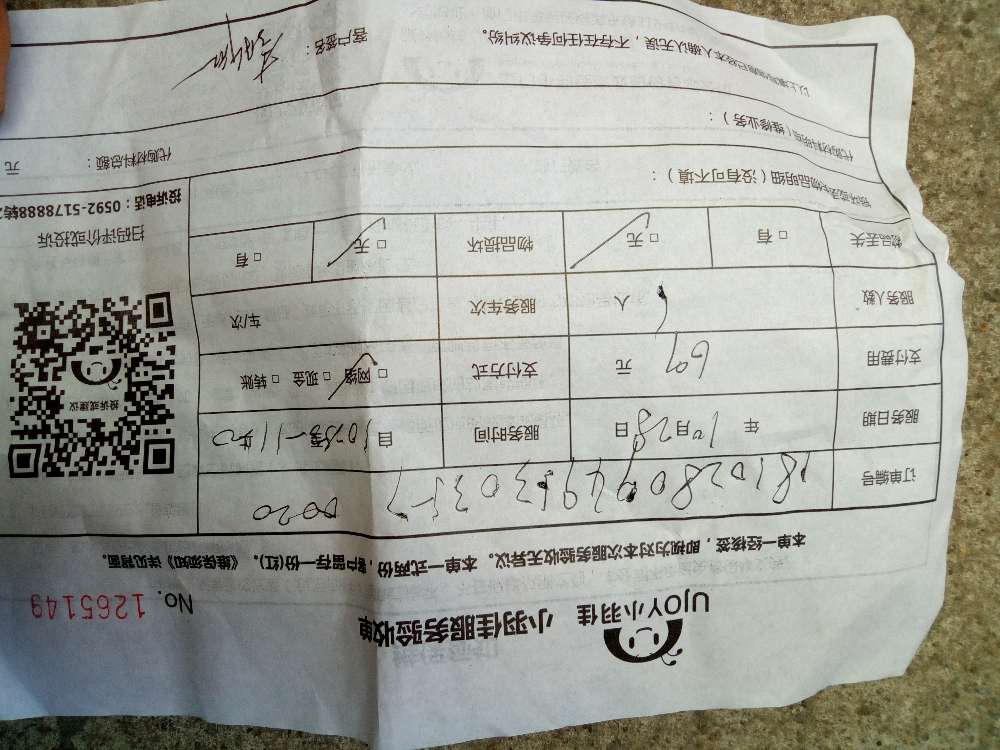 UJOY小羽佳 小羽佳服务验收单 No. 1265149
本单一经核签，即视为对本次服务验收无异议。本单一式两份，客户留存一份(红)。《维保须知》详见背面。
订单编号
0020
服务日期 年 10月28日 服务时间 自
支付费用 69 元 支付方式 □网络 □现金 □转账
服务人数 人 服务车次 车/次
物品丢失 □有 □无 物品损坏 □无 □有
投诉或建议
扫码评价或投诉
投诉电话：0592-5178888转
损坏或丢失物品明细（没有可不填）：
代购材料明细（维修业务）：
代购材料总额： 元
以上填写信息已经本人确认无误，不存在任何争议纠纷。 客户签名：